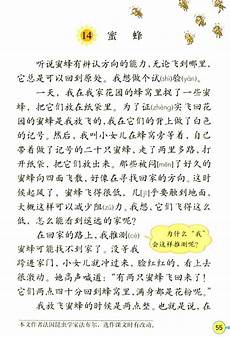 14 蜜蜂
听说蜜蜂有辨认方向的能力,无论飞到哪里,
它总是可以回到原处。我想做个试(shì)验(yàn)。
一天,我在我家花园的蜂窝里捉了一些蜜
蜂,把它们放在纸袋里。为了证(zhèng)实飞回花
园的蜜蜂是我放的,我在它们的背上做了白色
的记号。然后,我叫小女儿在蜂窝旁等着,自己
带着做了记号的二十只蜜蜂,走了两里多路,打
开纸袋,把它们放出来。那些被闷[mēn]了好久的
蜜蜂向四面飞散,好像在寻找回家的方向。这
时候起风了,蜜蜂飞得很低,几[jī]乎要触到地面,
大概这样可以减少阻(zǔ)力。我想,它们飞得这么
低,怎么能看到遥远的家呢?
在回家的路上,我推测(cè)
蜜蜂可能找不到家了。没等我
跨进家门,小女儿就冲过来,脸红红的,看上去
很激动。她高声喊道:“有两只蜜蜂飞回来了!
它们两点四十分回到蜂窝里,满身都是花粉呢。”
我放飞蜜蜂的时候是两点整。也就是说,在
为什么“我”
会这样推测呢?
本文作者法国昆虫学家法布尔,选作课文时有改动。
55